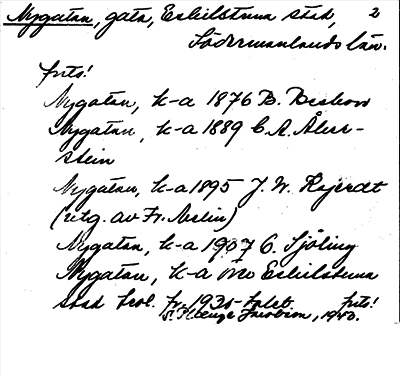 Nygatan, gata, Eskilstuna stad, 2
Södermanlands län.
forts!
Nygatan, k-a 1876 B.
Nygatan, k-a 1889 C. A. Åker-
stein
Nygatan, k-a 1895 J. W.
(utg. av Fr. Nelin)
Nygatan, k-a 1907 C. Sjöling
Nygatan, k-a över Eskilstuna
stad trol. fr. 1930-talet. forts!
Jacobson, 1940.